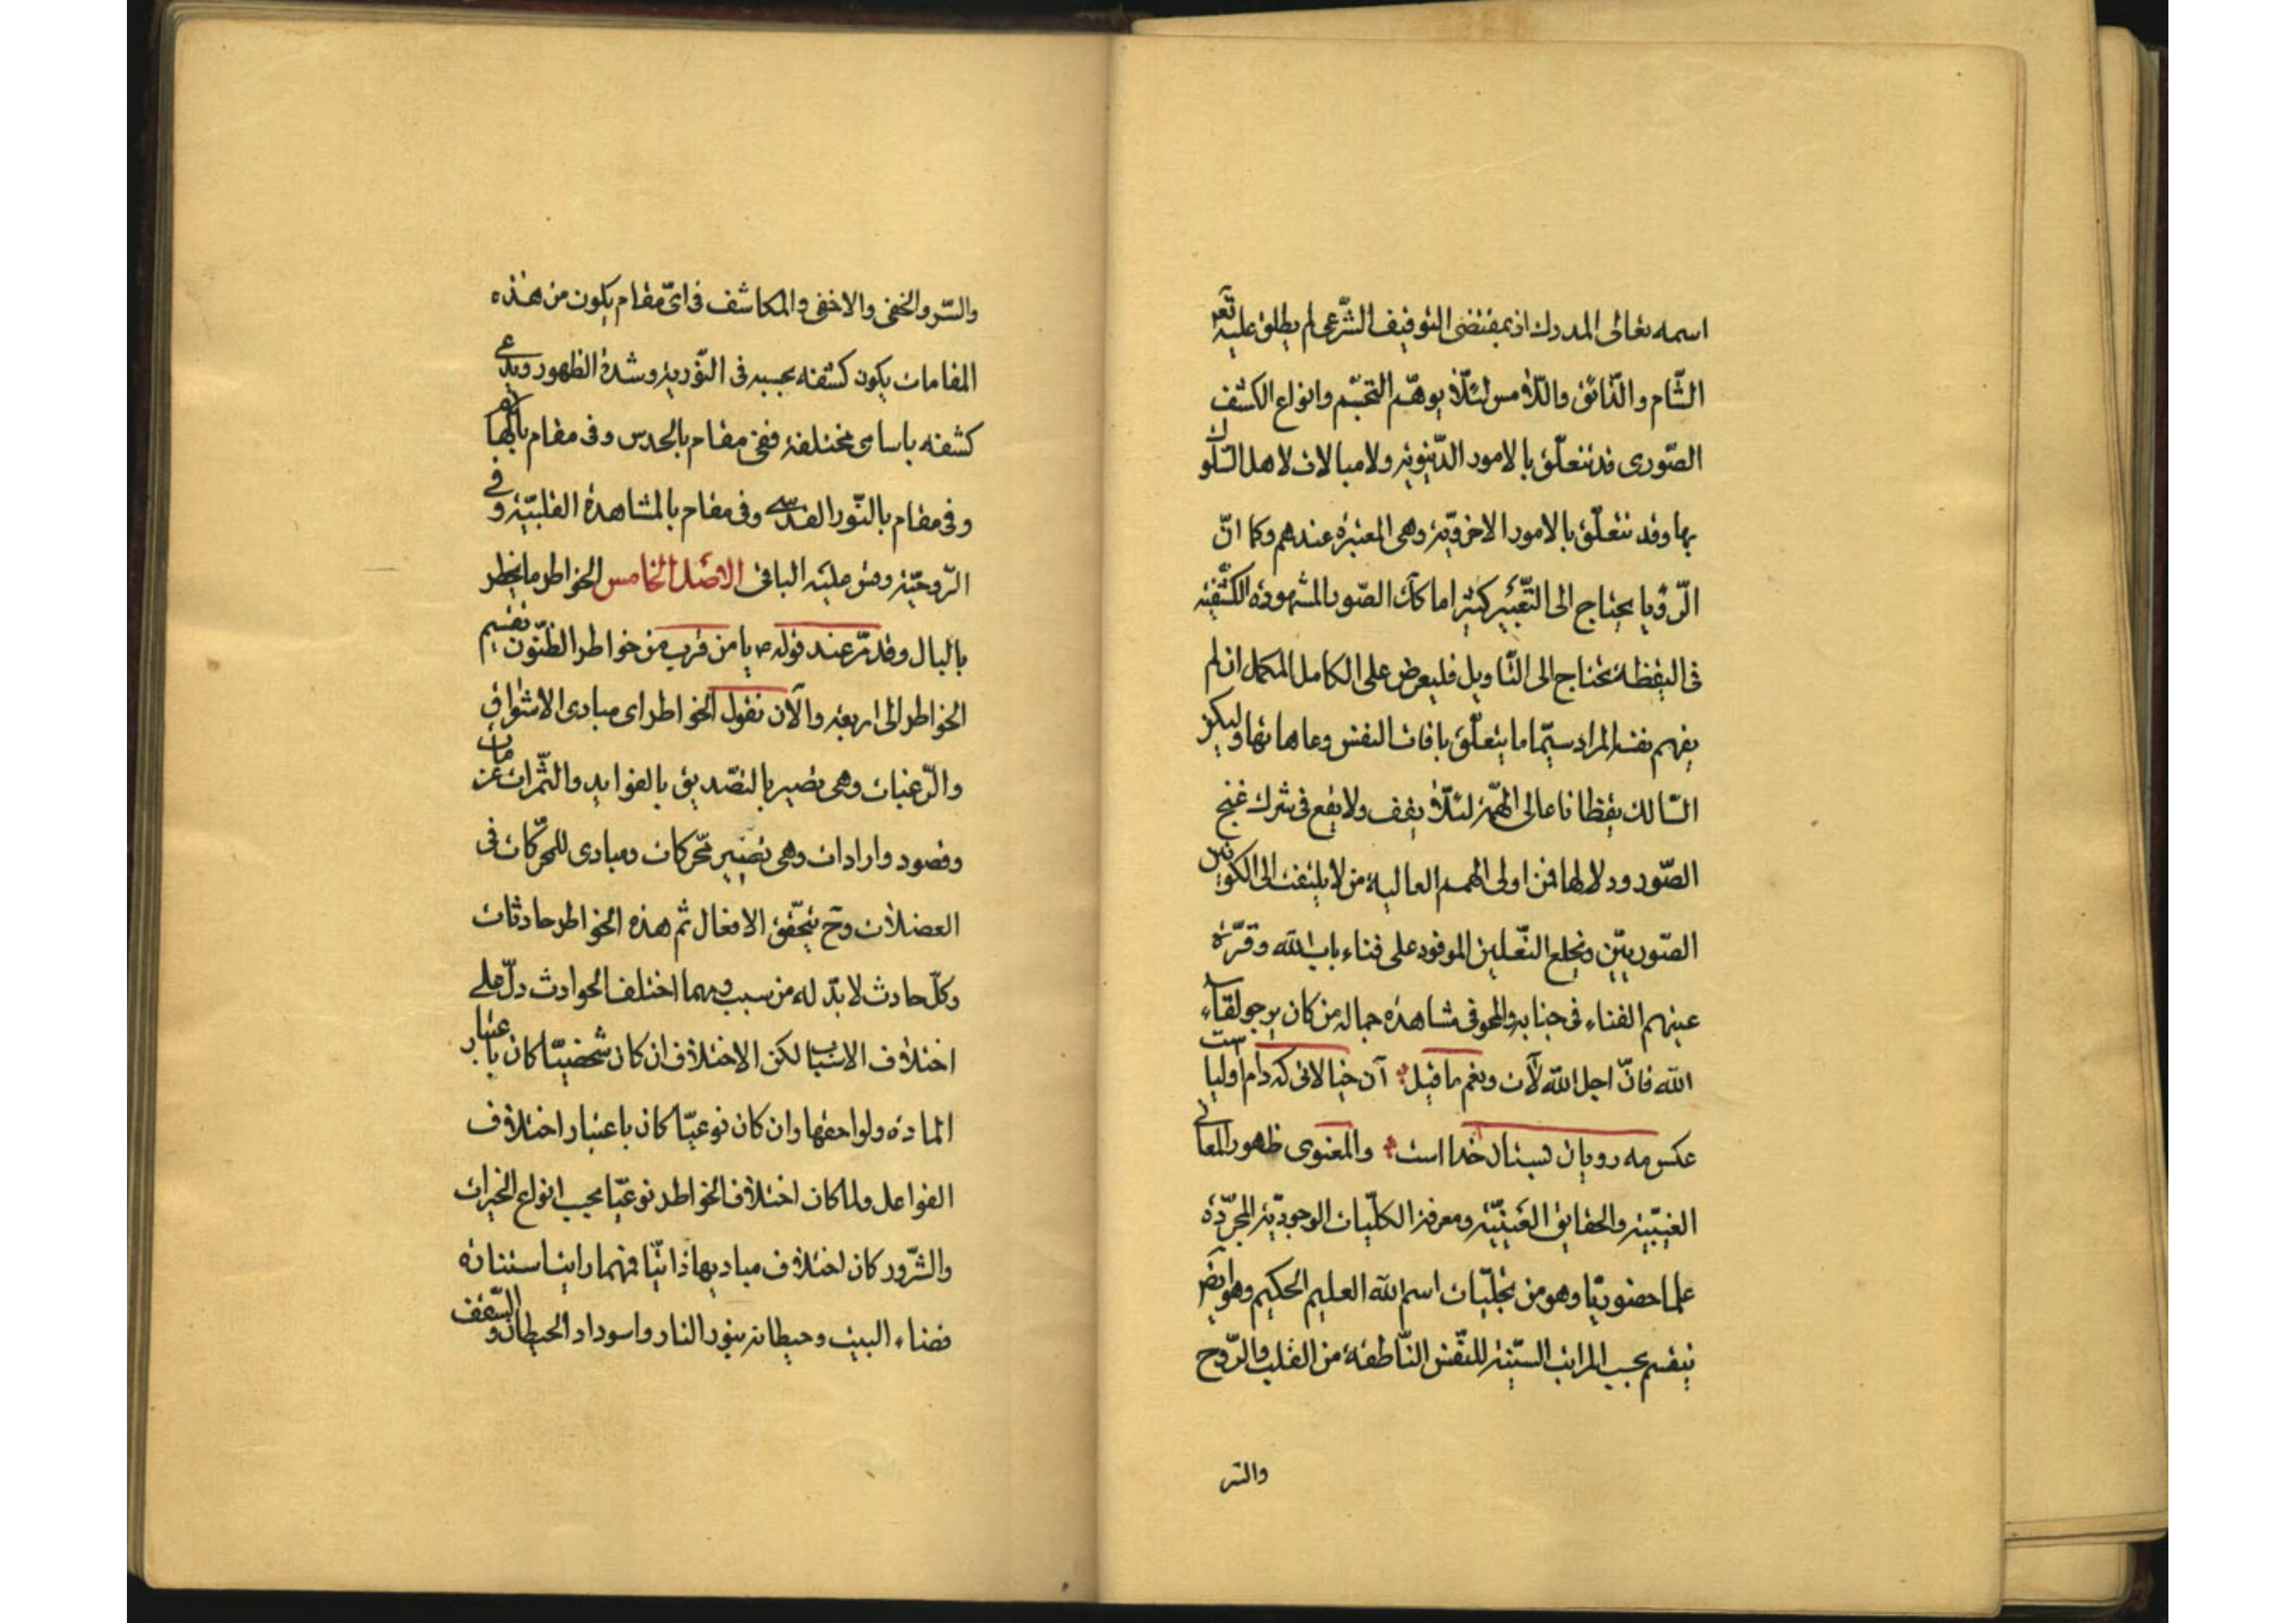 اسمه تعالى المدرك اذ بمقتضى التوقيف الشّرعى لم يطلق عليه تعم
الشّام والذّائق واللّامس لئلّا يوهم التجسّم وانواع الكشف
الصّورى قد تتعلّق بالامور الدّنيويّة ولا مبالات لاهل السّلوك
بها وقد تتعلّق بالامور الاخرويّة وهى المعتبرة عندهم وكما انّ
الرّؤيا يحتاج الى التّعبير كثيرا ما كك الصّور المشهودة الكشفيّة
فى اليقظة تحتاج الى التّاويل فليعرض على الكامل المكمل ان لم
يفهم نفسه المراد سيّما ما يتعلّق بافات النفس وعاهاتها وليكن
السّالك يقظانا عالى الهمّة لئلّا يقف ولا يقع فى شرك غنج
الصّور ودلالها فمن اولى الهمم العالية من لا يلتفت الى الكونين
الصّوريين ونخلع النّعلين الموفود على فناء باب الله وقرّة
عينهم الفناء فى جنابه والمحو فى مشاهدة جماله من كان يرجو لقاء
الله فانّ اجل الله لآت ونعم ما قيل آن خيالاتى كه دام اوليا ست
عكس مه رويان بستان خدا است والمعنوى ظهور المعانى
الغيبيّة والحقايق العينيّة ومعرفة الكلّيات الوجوديّة المجرّدة
علما حضوريّا وهو من تجلّيات اسم الله العليم الحكيم وهو ايضا
ينقسم بحسب المراتب الستّة للنّفس النّاطقة من القلب والرّوح
والسّر
والسّر والخفى والاخفى والمكاشف فى اىّ مقام يكون من هذه
المقامات يكون كشفه بحسبه فى النّوريّة وشدة الظهور ويدعى
كشفه باسامى مختلفة ففى مقام بالحدس وفى مقام بالالهام
وفى مقام بالنّور القدسى وفى مقام بالمشاهدة القلبيّة وفى
الرّوحيّة وقس عليه الباقى الاصل الخامس الخواطر ما يخطر
بالبال وقد مرّ عند قوله ص يا من قرب من خواطر الظّنون تقسيم
الخواطر الى اربعة والآن نقول الخواطر اى مبادى الاشواق
والرّغبات وهى تصير بالتصّديق بالفوايد والثّمرات عزمات
وقصود وارادات وهى تصير محّركات ومبادى للمحرّكات فى
العضلات وح يتحقّق الافعال ثم هذه الخواطر حادثات
وكلّ حادث لا بدّ له من سبب ومهما اختلف الحوادث دلّ على
اختلاف الاسباب لكن الاختلاف ان كان شخصيّا كان باعتبار
المادة ولواحقها وان كان نوعيّا كان باعتبار اختلاف
الفواعل ولما كان اختلاف الخواطر نوعيّا بحسب انواع الخيرات
والشّرور كان اختلاف مباديها ذاتيّا فمهما رايت استنارة
فضاء البيت وحيطانه بنور النار واسوداد الحيطان والسّقف